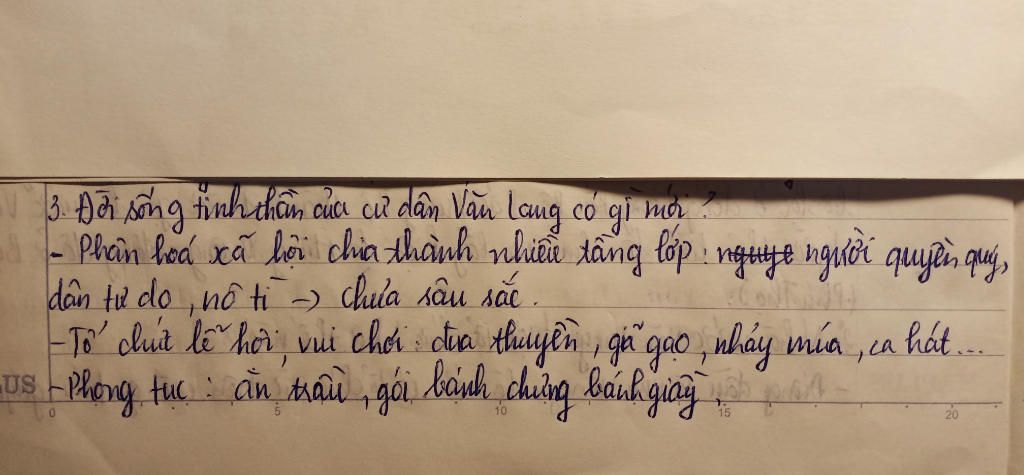 3. Đời sống tinh thần của cư dân Văn Lang có gì mới?
- Phân hoá xã hội chia thành nhiều tầng lớp: người quyền quý,
dân tự do, nô tì -> chưa sâu sắc.
- Tổ chứt lễ hội, vui chơi: đua thuyền, giã gạo, nhảy múa, ca hát...
US - Phong tục: ăn trầu, gói bánh chưng bánh giầy,
0 5 10 15 20